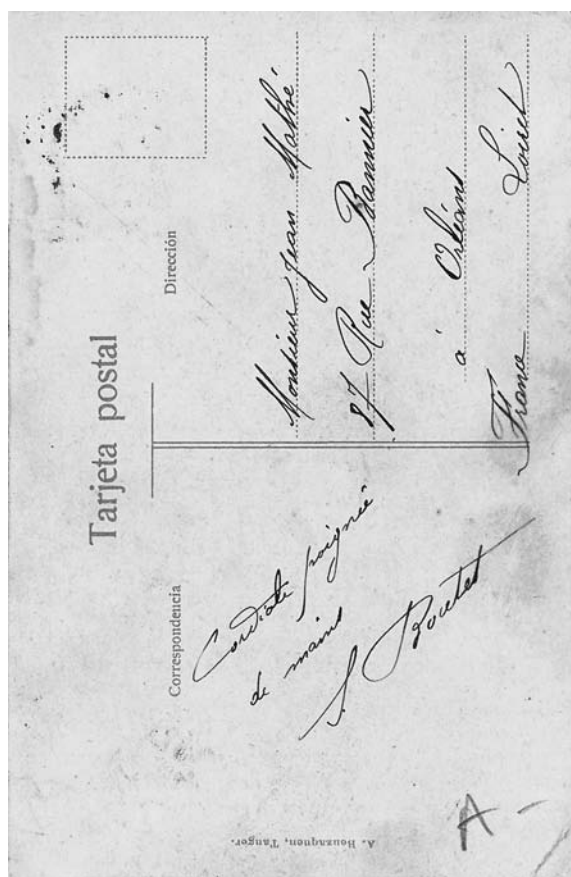 Tarjeta postal
Correspondencia
Cordiale poignée
de mains
S. Boutet
Dirección
Monsieur Jean Mathé
87 Rue Bannier
à Orléans
France Loiret
A. Benzaquen, Tanger.
A -